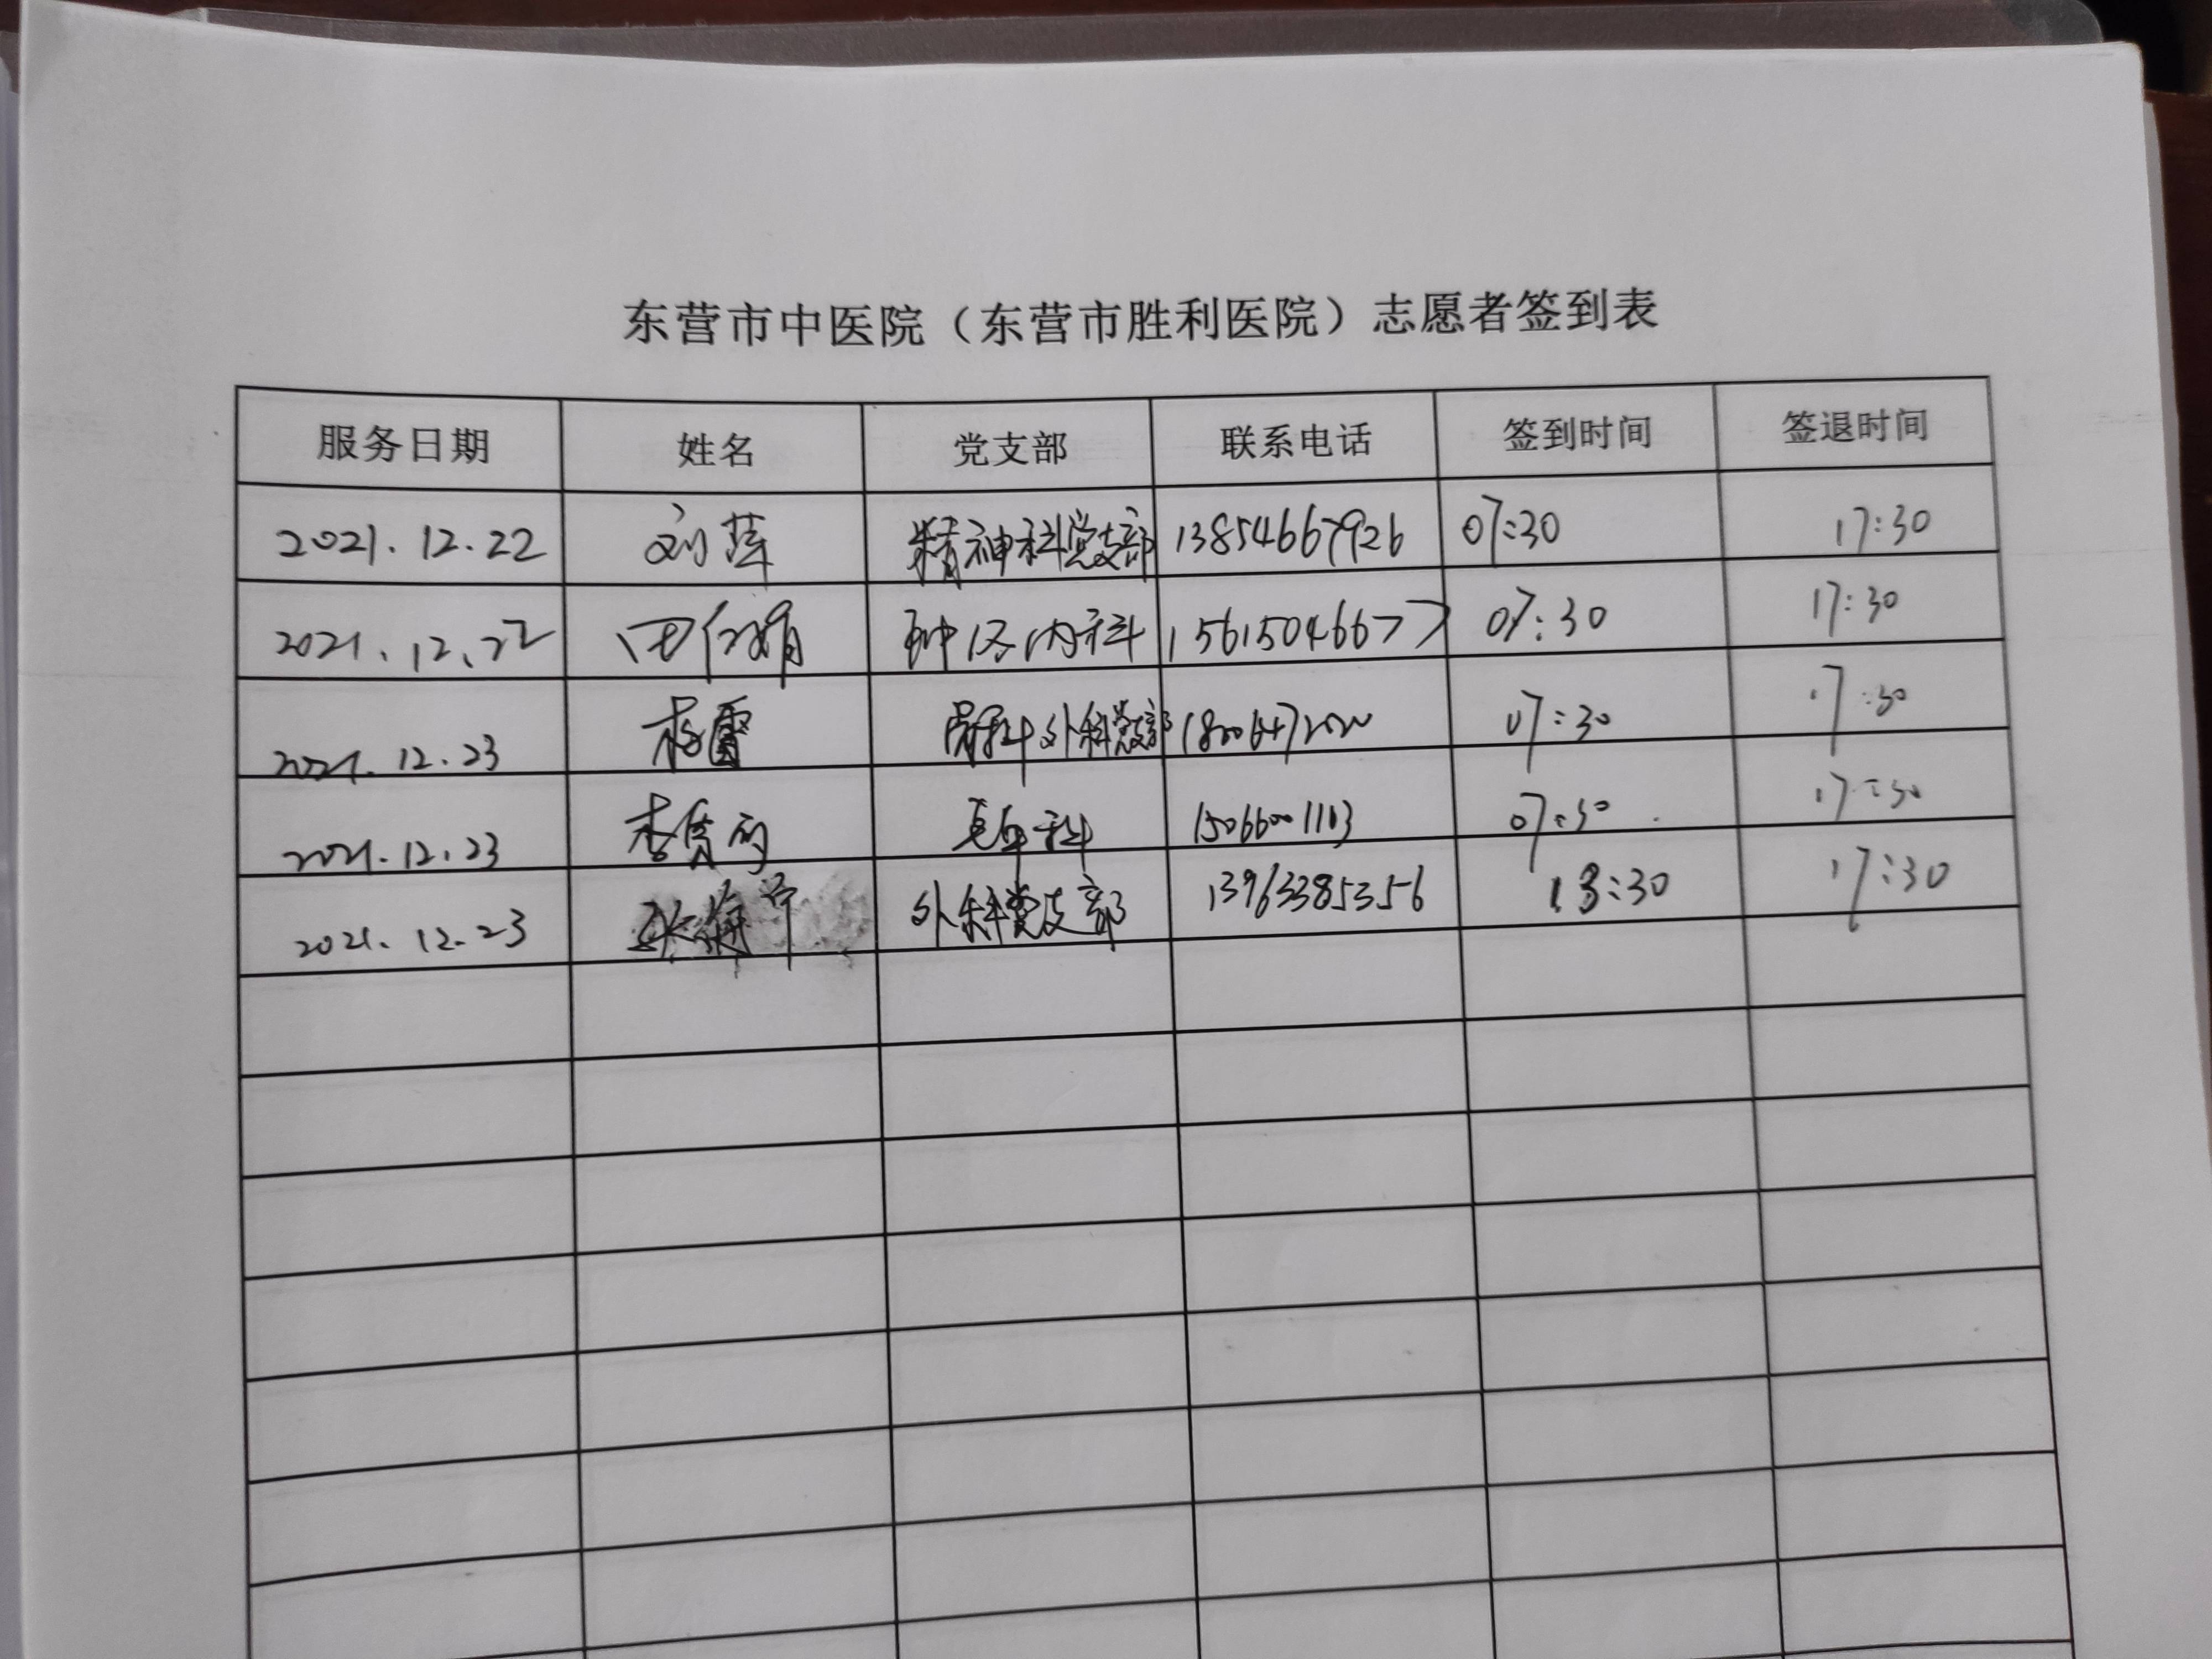 东营市中医院（东营市胜利医院）志愿者签到表
服务日期 姓名 党支部 联系电话 签到时间 签退时间
2021.12.22 刘萍 精神科党支部 13854667926 07:30 17:30
2021.12.22 田 娟 内科 15615046677 07:30 17:30
2021.12.23 外科党支部 07:30 17:30
2021.12.23 李 科 15066001113 07:30 17:30
2021.12.23 张海宁 外科党支部 13963385356 13:30 17:30